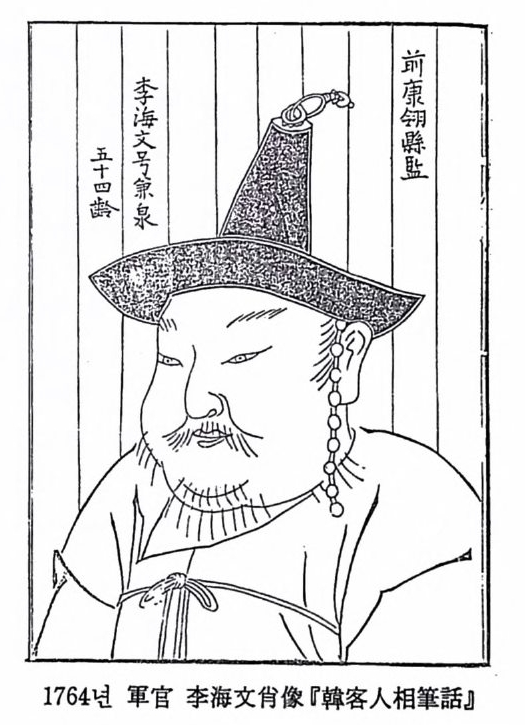 前康翎縣監
李海文号兼泉
五十四齡
1764년 軍官 李海文肖像『韓客人相筆話』